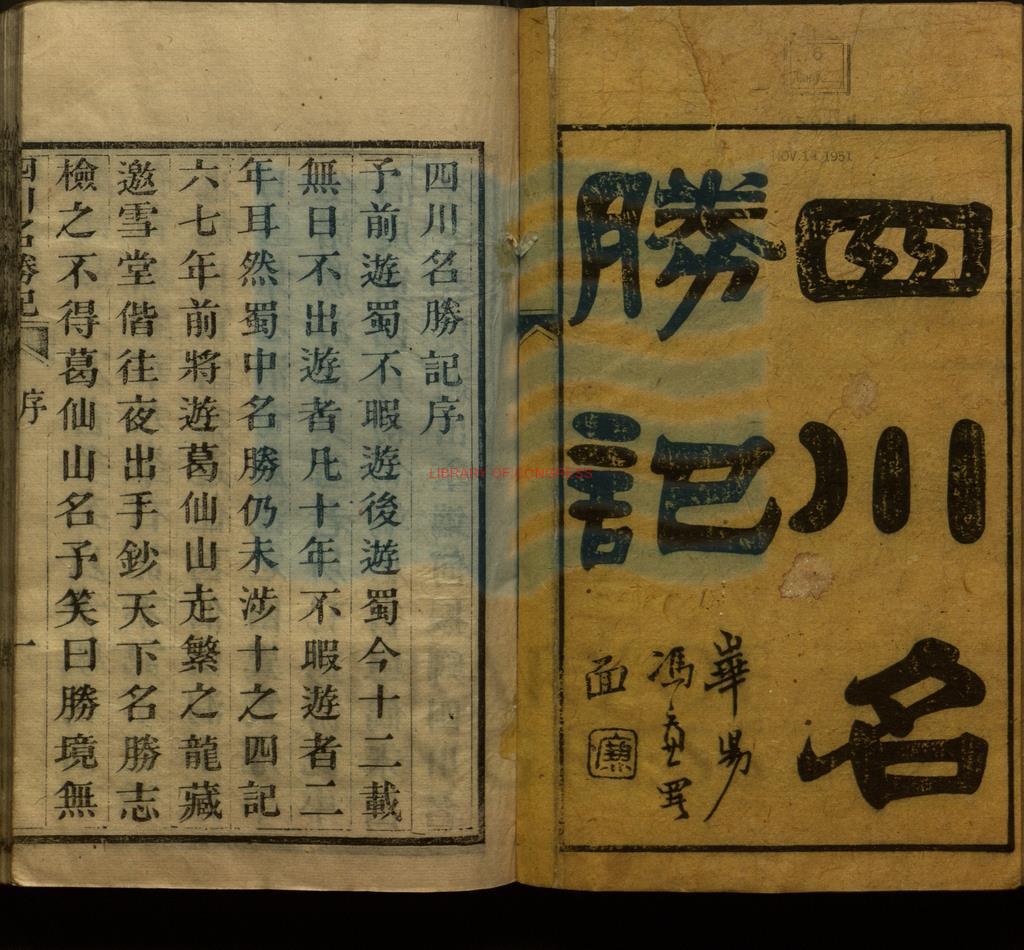 四川名
勝記
華陽
馮
署
面
6
NOV. 14 1951
LIBRARY OF CONGRESS
四川名勝記序
予前遊蜀不暇遊後遊蜀今十二載
無日不出遊者凡十年不暇遊者二
年耳然蜀中名勝仍未涉十之四記
六七年前將遊葛仙山走繁之龍藏
邀雪堂偕往夜出手鈔天下名勝志
檢之不得葛仙山名予笑曰勝境無
四川名勝記 序 一